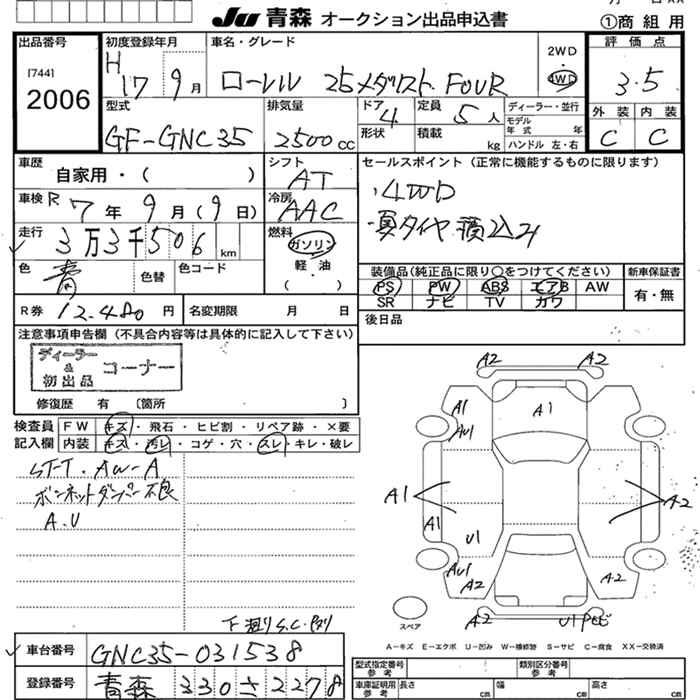 JU 青森 オークション出品申込書
①商 組 用
出品番号
[744]
2006
初度登録年月
H 17 9月
車名・グレード
ローレル 25メダリスト FOUR
2WD
・
4WD
評価点
3.5
外装 内装
C C
型式
GF-GNC35
排気量
2500cc
ドア 4
形状
定員 5人
積載 kg
ディーラー・並行
モデル年式 年
ハンドル 左・右
車歴
自家用・( )
シフト
AT
セールスポイント(正常に機能するものに限ります)
・4WD
・夏タイヤ積込み
車検 R 7年 9月(9日)
冷房
AAC
走行 3万3千506km
燃料
ガソリン
軽・油
( )
色 青
色替
色コード
装備品(純正品に限り○をつけてください)
PS PW ABS エアB AW
SR ナビ TV カワ
新車保証書
有・無
R券 12,480円
名変期限 月 日
後日品
注意事項申告欄(不具合内容等は具体的に記入して下さい)
ディーラー
&
初出品
コーナー
修復歴 有 〔箇所 〕
検査員
記入欄
FW キズ・飛石・ヒビ割・リペア跡・×要
内装 キズ・汚レ・コゲ・穴・スレ・キレ・破レ
STT・AW-A
ボンネットダンパー不良
A.U
A2 A2
A1
A1
AU1
A1
A2
A1
U1
AU1
A2
A2
A2
スペア
A-キズ E-エクボ U-凹み W-補修跡 S-サビ C-腐食 XX-交換済
下廻りS.C
車台番号 GNC35-031538
登録番号 青森 330 さ 2278
型式指定番号
参考
類別区分番号
参考
車庫証明用
参考
長さ cm
幅 cm
高さ cm